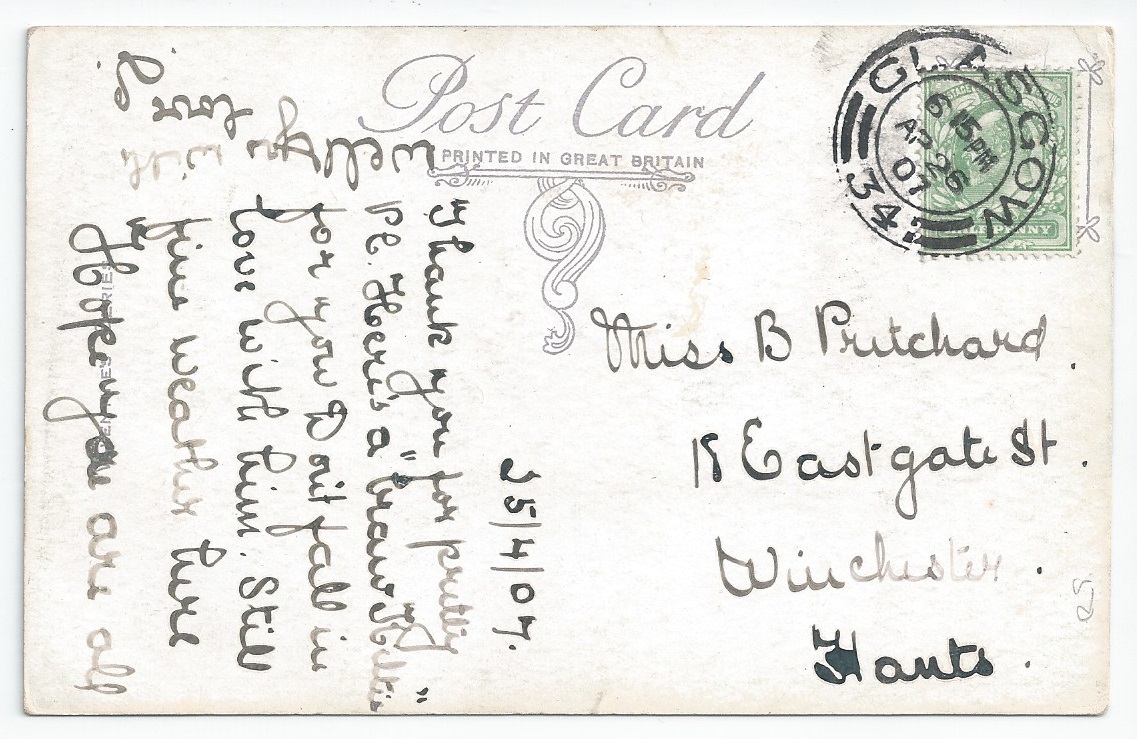 Post Card
PRINTED IN GREAT BRITAIN
GLASGOW
6 15 PM
AP 26
07
34
Miss B Pritchard.
18 Eastgate St.
Winchester.
Hants.
25/4/07.
Thank you for pretty
P.C. Here's a "braw Kiltie"
for you Don't fall in
love with him. Still
fine weather here
Hope you are all
well
with
love